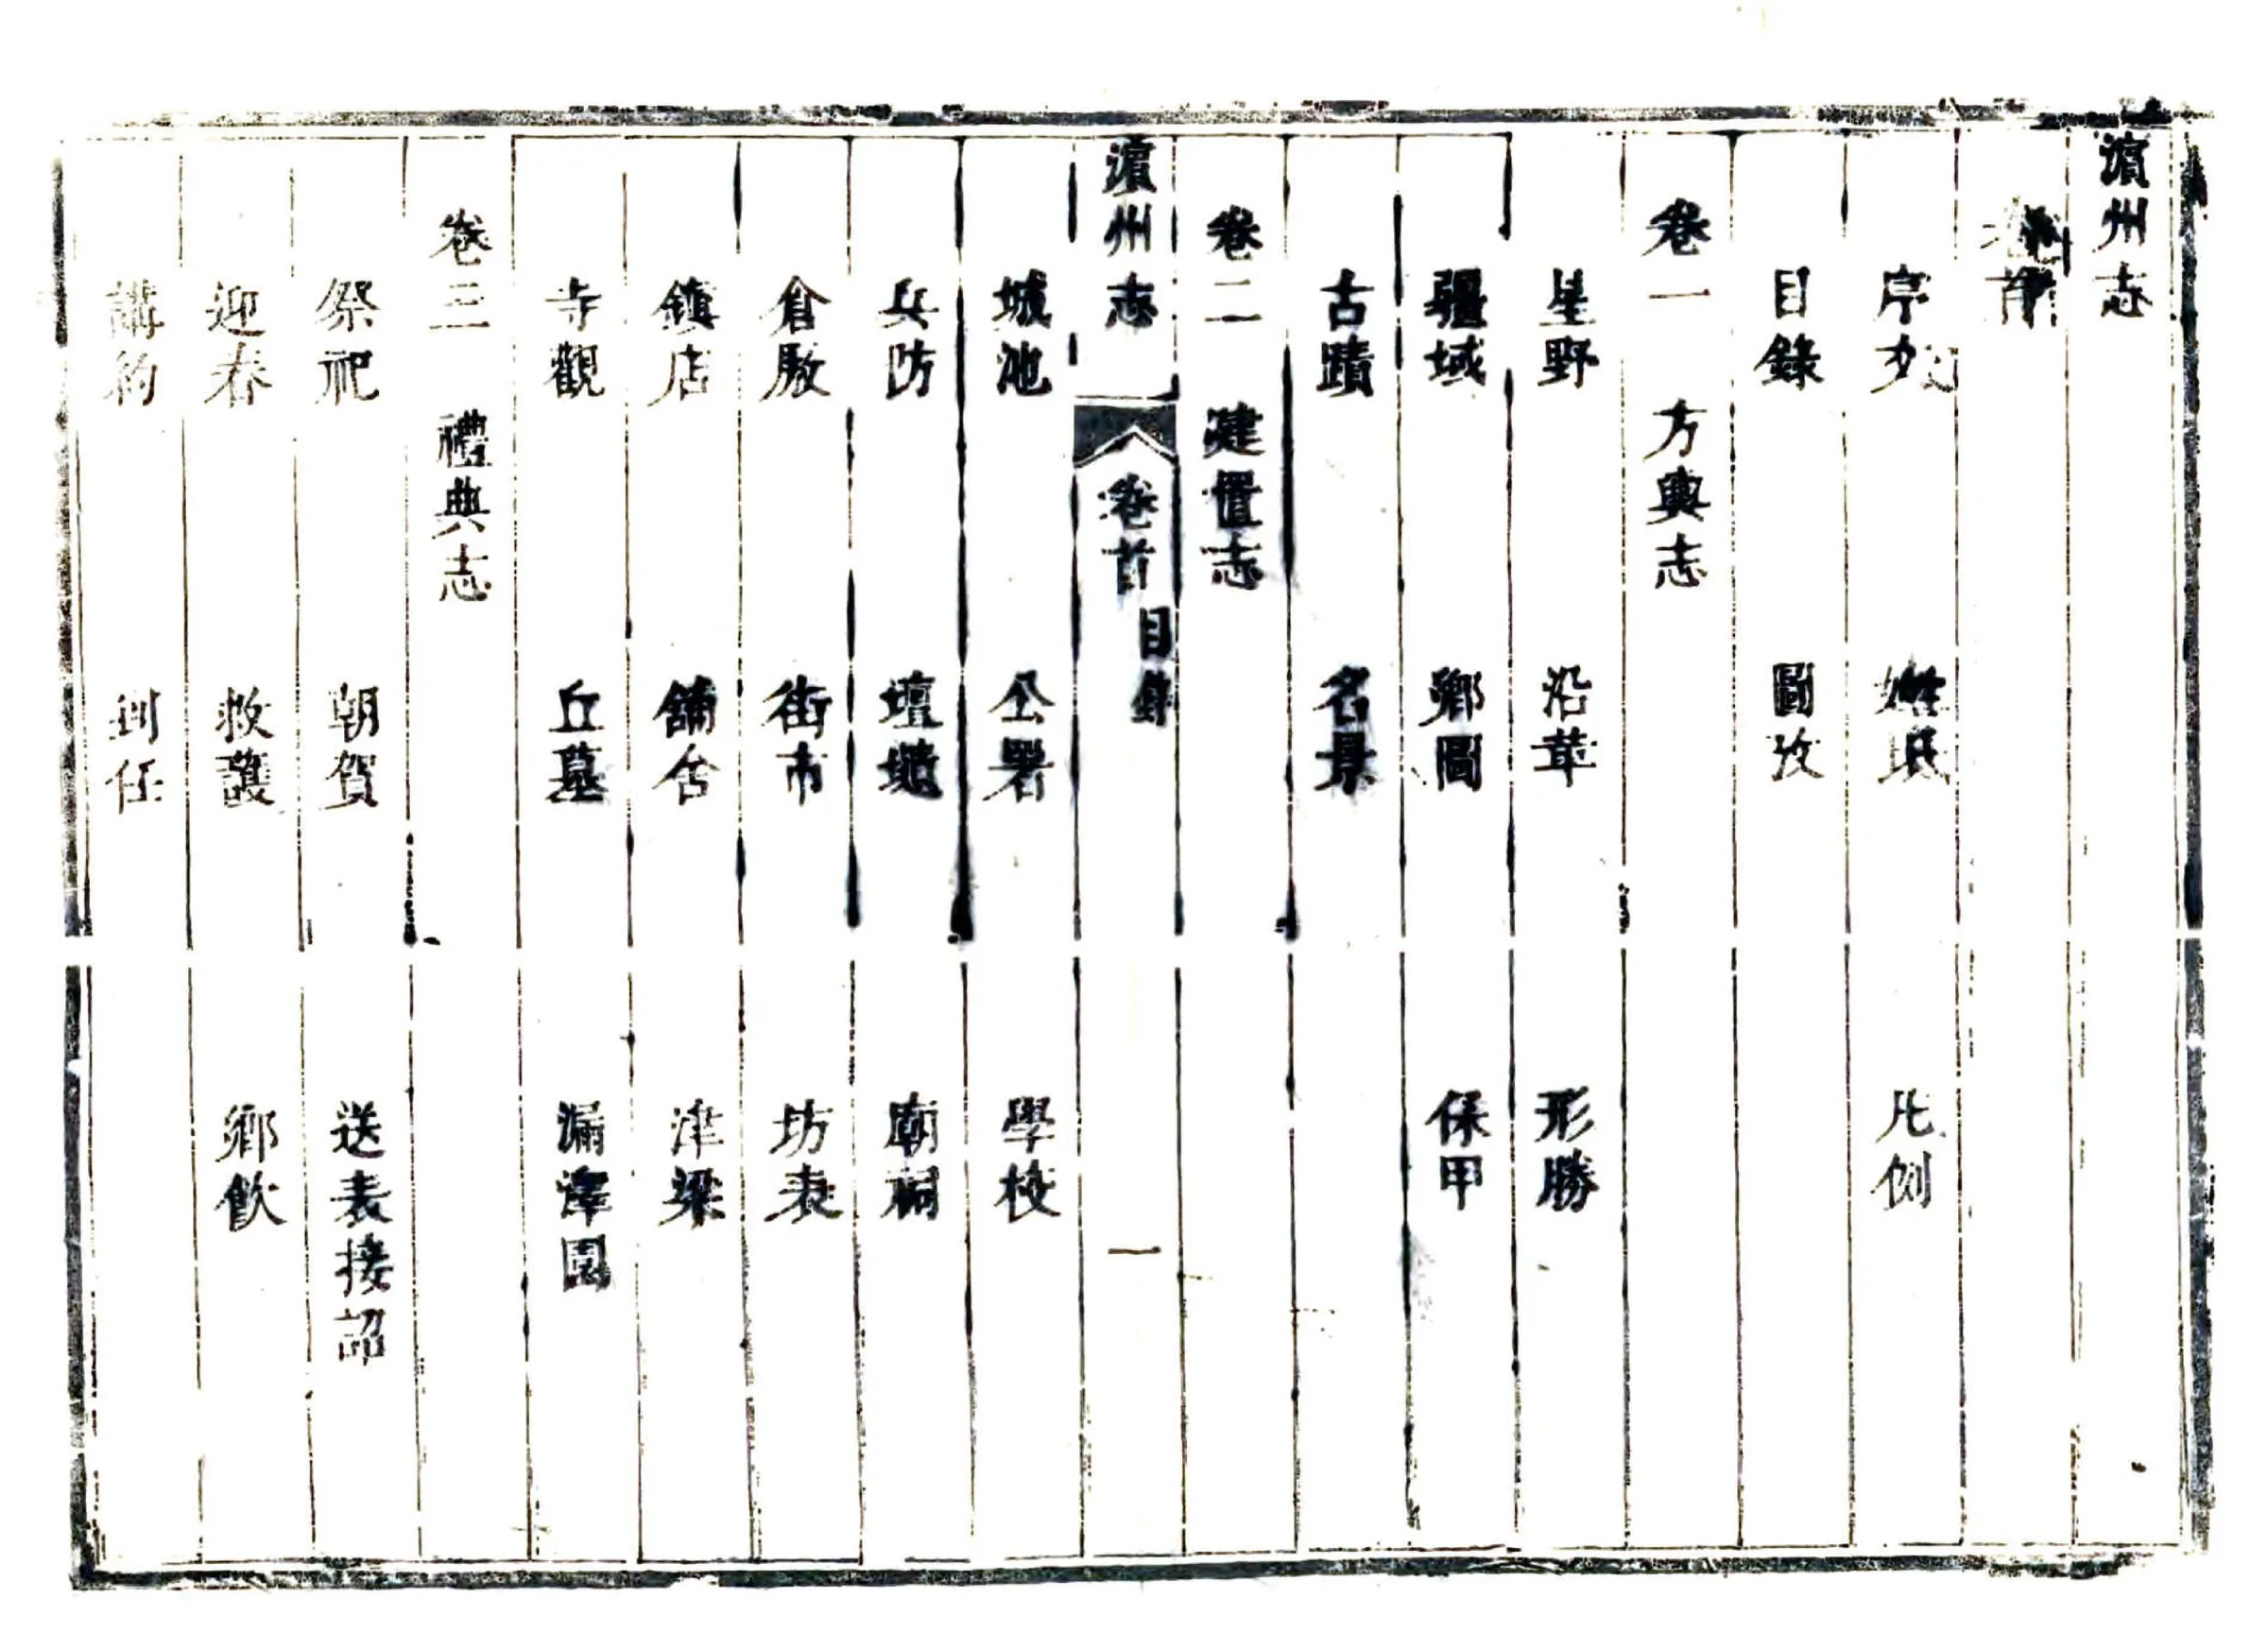 濵州志
卷首
序文 姓氏 凡例
目錄 圖攷
卷一 方輿志
星野 沿革 形勝
疆域 鄉圖 保甲
古蹟 名景
卷二 建置志
濵州志 卷首 目錄 一
城池 公署 學校
兵防 壇壝 廟祠
倉廒 街市 坊表
鎮店 舖舍 津梁
寺觀 丘墓 漏澤園
卷三 禮典志
祭祀 朝賀 送表接詔
迎春 救護 鄉飲
講約 到任